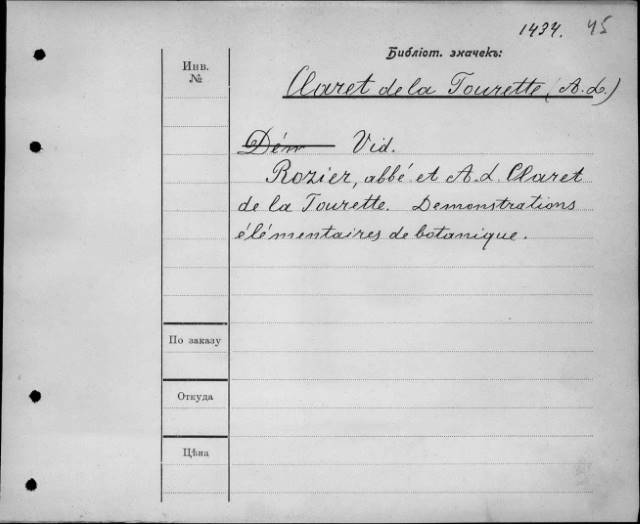 1434. 45
Библіот. значекъ:
Инв.
№
Claret de la Tourette (A. L.)
Dém Vid.
Rozier, abbé et A. L. Claret
de la Tourette. Demonstrations
élémentaires de botanique.
По заказу
Откуда
Цѣна